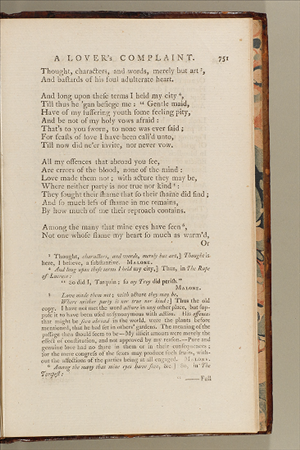 A LOVER's COMPLAINT. 751
Thought, characters, and words, merely but art ³,
And bastards of his foul adulterate heart.
And long upon these terms I held my city ⁴,
Till thus he 'gan besiege me: “ Gentle maid,
Have of my suffering youth some feeling pity,
And be not of my holy vows afraid:
That's to you sworn, to none was ever said;
For feasts of love I have been call'd unto,
Till now did ne'er invite, nor never vow.
All my offences that abroad you see,
Are errors of the blood, none of the mind;
Love made them not; with acture they may be,
Where neither party is nor true nor kind ⁵:
They sought their shame that so their shame did find;
And so much less of shame in me remains,
By how much of me their reproach contains.
Among the many that mine eyes have seen ⁶,
Not one whose flame my heart so much as warm'd,
Or
³ Thought, characters, and words, merely but art,] Thought is
here, I believe, a substantive. MALONE.
⁴ And long upon these terms I held my city,] Thus, in The Rape
of Lucrece:
“ So did I, Tarquin; so my Troy did perish.”
MALONE.
⁵ Love made them not; with acture they may be,
Where neither party is nor true nor kind:] Thus the old
copy. I have not met the word acture in any other place, but sup-
pose it to have been used as synonymous with action. His offences
that might be seen abroad in the world, were the plants before
mentioned, that he had set in others' gardens. The meaning of the
passage then should seem to be—My illicit amours were merely the
effect of constitution, and not approved by my reason.—Pure and
genuine love had no share in them or in their consequences;
for the mere congress of the sexes may produce such fruits, with-
out the affections of the parties being at all engaged. MALONE.
⁶ Among the many that mine eyes have seen, &c.] So, in The
Tempest:
“ ——Full